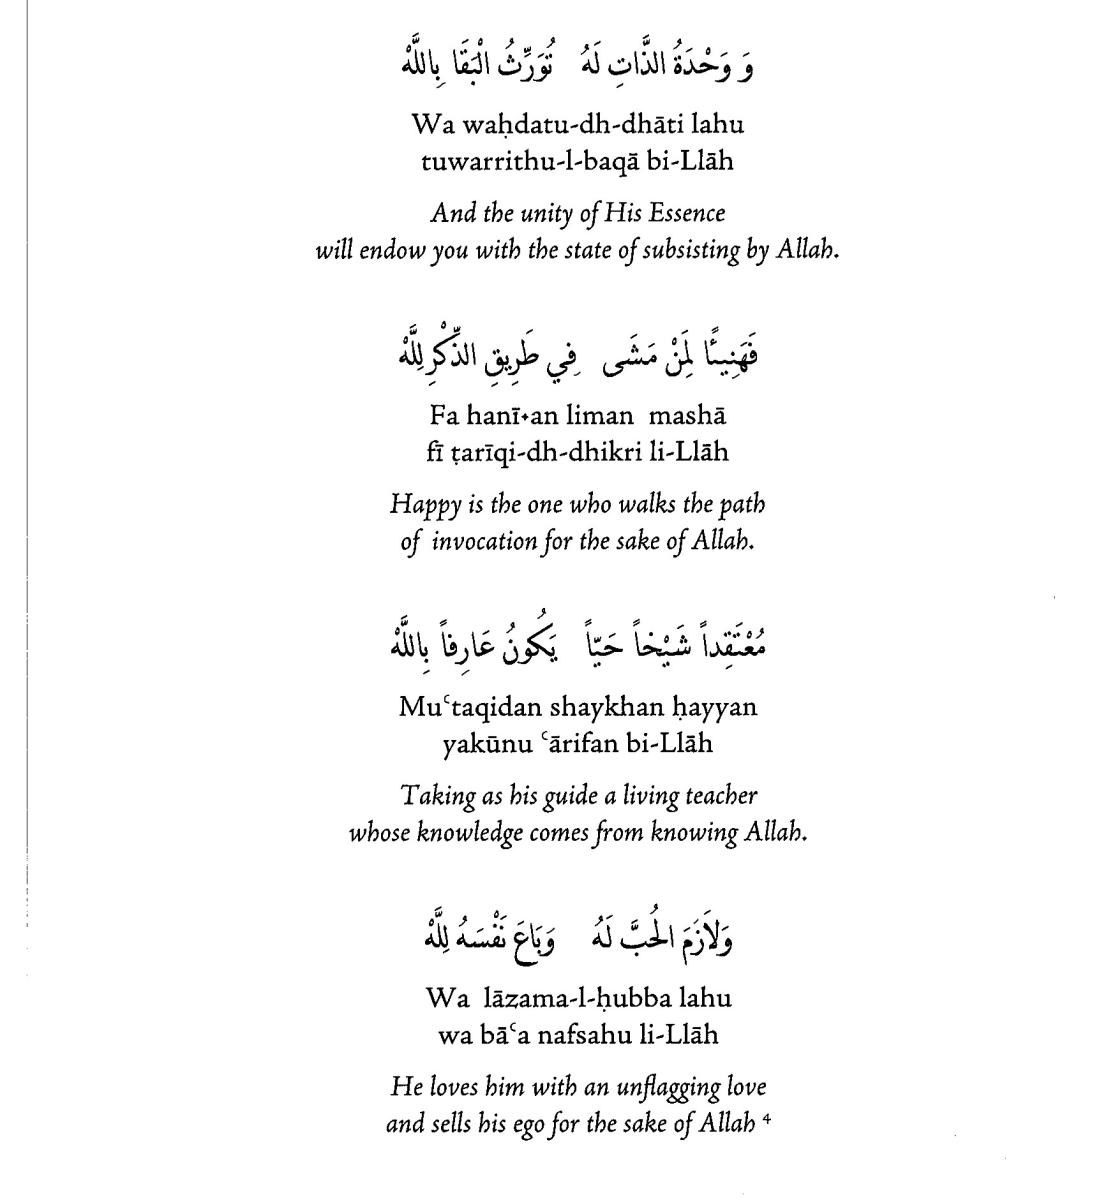 وَ وَحْدَةُ الذَّاتِ لَهُ تُوَرِّثُ الْبَقَا بِاللَّهْ
Wa waḥdatu-dh-dhāti lahu
tuwarrithu-l-baqā bi-Llāh
And the unity of His Essence
will endow you with the state of subsisting by Allah.
فَهَنِيئًا لِمَنْ مَشَى فِي طَرِيقِ الذِّكْرِ لِلَّهْ
Fa hanī᛫an liman mashā
fī ṭarīqi-dh-dhikri li-Llāh
Happy is the one who walks the path
of invocation for the sake of Allah.
مُعْتَقِداً شَيْخاً حَيّاً يَكُونُ عَارِفاً بِاللَّهْ
Muʿtaqidan shaykhan ḥayyan
yakūnu ʿārifan bi-Llāh
Taking as his guide a living teacher
whose knowledge comes from knowing Allah.
وَلاَزَمَ الْحُبَّ لَهُ وَبَاعَ نَفْسَهُ لِلَّهْ
Wa lāzama-l-ḥubba lahu
wa bāʿa nafsahu li-Llāh
He loves him with an unflagging love
and sells his ego for the sake of Allah ⁴